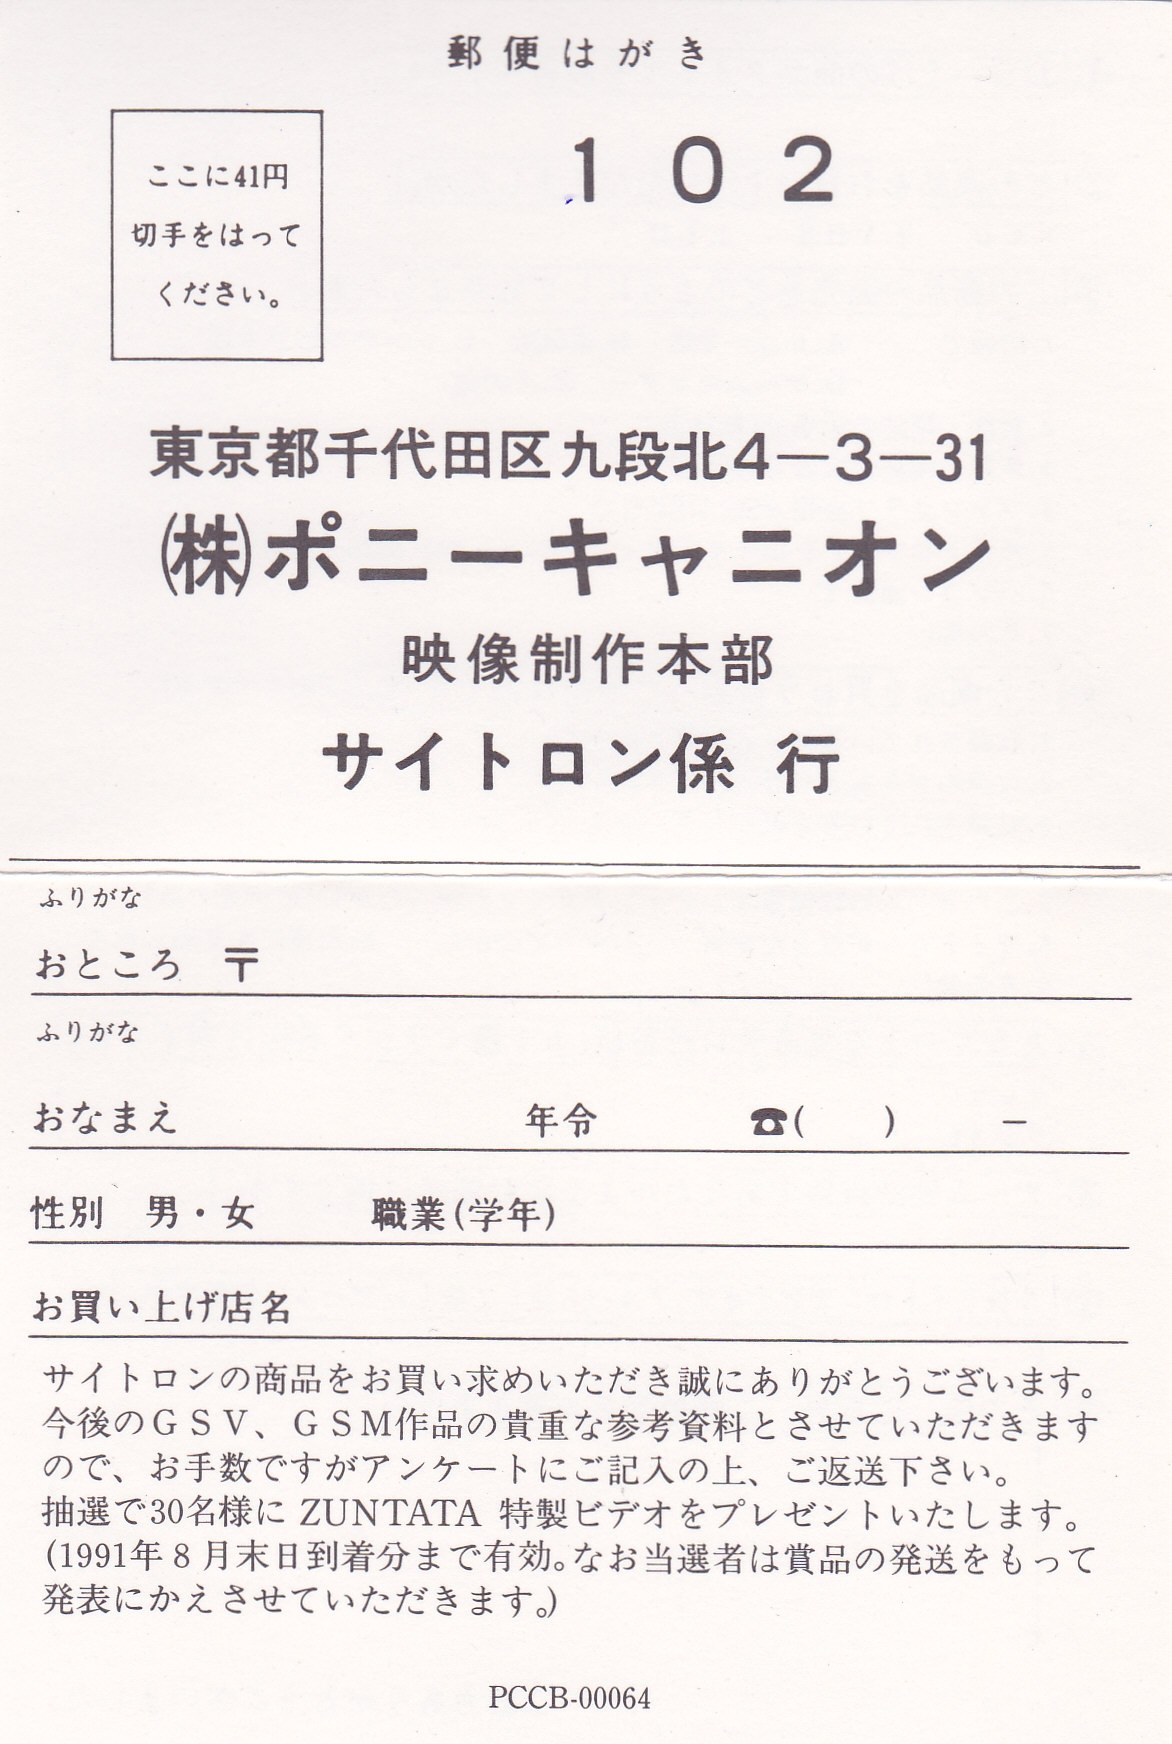 郵便はがき
ここに41円
切手をはって
ください。
102
東京都千代田区九段北4—3—31
(株)ポニーキャニオン
映像制作本部
サイトロン係 行
ふりがな
おところ 〒
ふりがな
おなまえ 年令 ☎( ) −
性別 男・女 職業(学年)
お買い上げ店名
サイトロンの商品をお買い求めいただき誠にありがとうございます。
今後のGSV、GSM作品の貴重な参考資料とさせていただきます
ので、お手数ですがアンケートにご記入の上、ご返送下さい。
抽選で30名様に ZUNTATA 特製ビデオをプレゼントいたします。
(1991年8月末日到着分まで有効。なお当選者は賞品の発送をもって
発表にかえさせていただきます。)
PCCB-00064